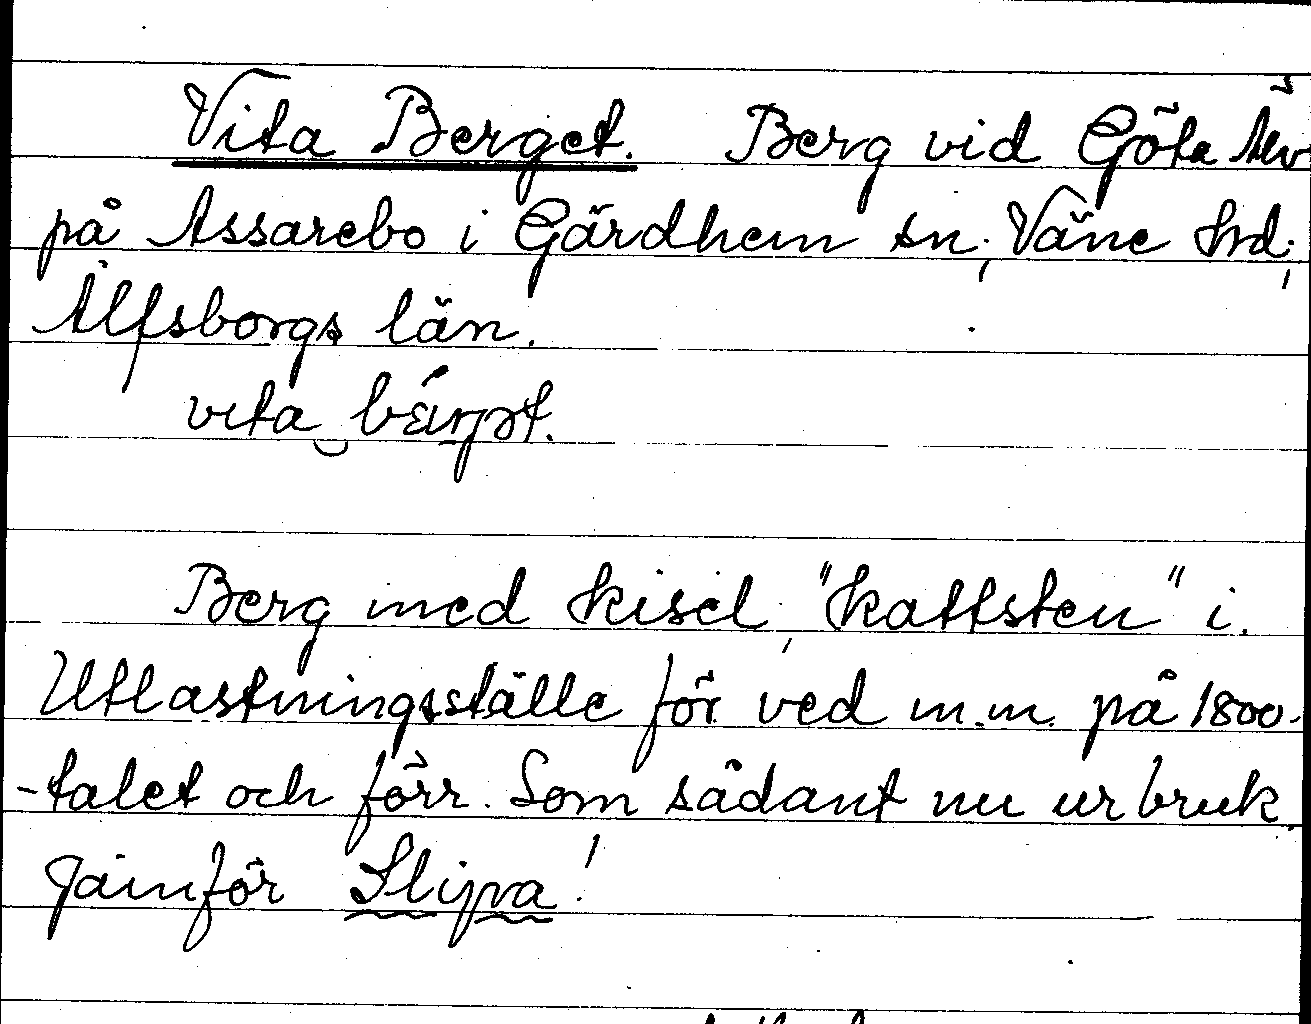 Vita Berget. Berg vid Göta Älv
på Assarebo i Gärdhem sn, Väne hd,
Älfsborgs län.
vita
Berg med kisel, "kattsten" i.
Utlastningsställe för ved m.m. på 1800-
-talet och förr. Som sådant nu ur bruk.
Jämför Slipra!